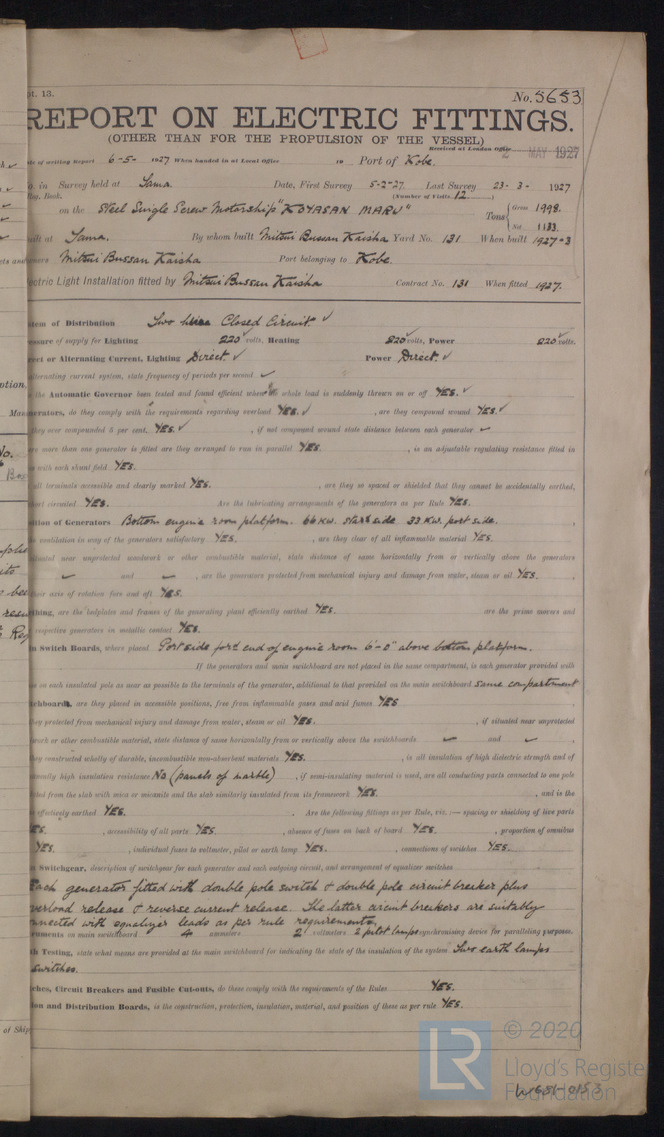 pt. 13.
No. 5653
REPORT ON ELECTRIC FITTINGS.
(OTHER THAN FOR THE PROPULSION OF THE VESSEL)
Received at London Office
2 MAY 1927
of writing Report 6-5- 1927 When handed in at Local Office 19 Port of Kobe.
in Survey held at Tama. Date, First Survey 5-2-27. Last Survey 23-3- 1927
Reg. Book. (Number of Visits 12)
on the Steel Single Screw Motorship "KOYASAN MARU" Tons { Gross 1998.
Net 1133.
built at Tama. By whom built Mitsui Bussan Kaisha Yard No. 131 When built 1927-3
Mitsui Bussan Kaisha Port belonging to Kobe.
ectric Light Installation fitted by Mitsui Bussan Kaisha Contract No. 131 When fitted 1927.
tem of Distribution Two Closed Circuit. ✓
essure of supply for Lighting 220 volts, Heating 220 volts, Power 220 volts.
ect or Alternating Current, Lighting Direct. ✓ Power Direct. ✓
alternating current system, state frequency of periods per second ✓
the Automatic Governor been tested and found efficient when the whole load is suddenly thrown on or off YES. ✓
erators, do they comply with the requirements regarding overload YES. ✓ , are they compound wound YES. ✓
they over compounded 5 per cent. YES. ✓ , if not compound wound state distance between each generator ✓
more than one generator is fitted are they arranged to run in parallel YES. , is an adjustable regulating resistance fitted in
with each shunt field YES.
all terminals accessible and clearly marked YES. , are they so spaced or shielded that they cannot be accidentally earthed,
short circuited YES. Are the lubricating arrangements of the generators as per Rule YES.
ition of Generators Bottom engine room platform. 66 KW. starb side 33 KW. port side.
ventilation in way of the generators satisfactory YES. , are they clear of all inflammable material YES.
situated near unprotected woodwork or other combustible material, state distance of same horizontally from or vertically above the generators
✓ and ✓ , are the generators protected from mechanical injury and damage from water, steam or oil YES.
their axes of rotation fore and aft YES.
thing, are the bedplates and frames of the generating plant efficiently earthed YES. are the prime movers and
respective generators in metallic contact YES.
n Switch Boards, where placed Port side for'd end of engine room 6'-0" above bottom platform.
If the generators and main switchboard are not placed in the same compartment, is each generator provided with
on each insulated pole as near as possible to the terminals of the generator, additional to that provided on the main switchboard same compartment
tchboards, are they placed in accessible positions, free from inflammable gases and acid fumes YES
they protected from mechanical injury and damage from water, steam or oil YES. , if situated near unprotected
work or other combustible material, state distance of same horizontally from or vertically above the switchboards ✓ and ✓
they constructed wholly of durable, incombustible non-absorbent materials YES. , is all insulation of high dielectric strength and of
anently high insulation resistance No (panels of marble) , if semi-insulating material is used, are all conducting parts connected to one pole
ted from the slab with mica or micanite and the slab similarly insulated from its framework YES. , and is the
effectively earthed YES. Are the following fittings as per Rule, viz. :— spacing or shielding of live parts
YES. , accessibility of all parts YES. , absence of fuses on back of board YES. , proportion of omnibus
YES. , individual fuses to voltmeter, pilot or earth lamp YES. , connections of switches YES.
n Switchgear, description of switchgear for each generator and each outgoing circuit, and arrangement of equalizer switches
Each generator fitted with double pole switch & double pole circuit breaker plus
overload release & reverse current release. The latter circuit breakers are suitably
connected with equalizer leads as per rule requirements.
ruments on main switchboard 4 ammeters 2 voltmeters 2 pilot lamps synchronising device for paralleling purposes.
th Testing, state what means are provided at the main switchboard for indicating the state of the insulation of the system Two earth lamps
& switches.
tches, Circuit Breakers and Fusible Cut-outs, do these comply with the requirements of the Rules YES.
ion and Distribution Boards, is the construction, protection, insulation, material, and position of these as per rule YES.
of Ship
© 2020
LR Lloyd's Register
Foundation
W651-0153